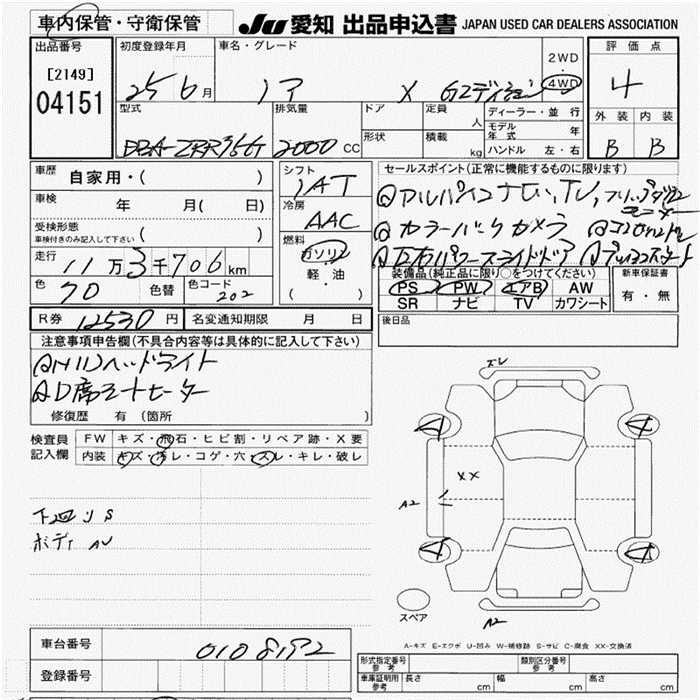 車内保管・守衛保管
JU 愛知 出品申込書 JAPAN USED CAR DEALERS ASSOCIATION
出品番号 初度登録年月 車名・グレード 評価点
[2149] 2WD
04151 25 6 月 ノア X G2 4WD 4
型式 排気量 ドア 定員 人 ディーラー・並行 外装 内装
DBA-ZRR 2000 CC 形状 積載 kg モデル年式 年 B B
ハンドル 左・右
車歴 自家用・( ) シフト セールスポイント(正常に機能するものに限ります)
車検 年 月( 日) IAT
受検形態 冷房 カラーバックカメラ
車検付きのみ記入して下さい ( ) AAC 左右パワースライドドア
走行 11万3千706km 燃料 ガソリン 装備品(純正品に限り○をつけてください) 新車保証書
軽・油 PS PW エアB AW 有・無
色 70 色替 色コード 202 ( ) SR ナビ TV カワシート
R券 12530円 名変通知期限 月 日 後日品
注意事項申告欄(不具合内容等は具体的に記入して下さい)
HIDヘッドライト
D席シートヒーター
修復歴 有(箇所 )
検査員 FW キズ・飛石・ヒビ割・リペア跡・X要
記入欄 内装 キズ・汚レ・コゲ・穴・スレ・キレ・破レ
ズレ
XX
A2
下廻り S
ボディ
スペア
A2
A-キズ E-エクボ U-凹み W-補修跡 S-サビ C-腐食 XX-交換済
車台番号 0108192
登録番号
型式指定番号 参考 類別区分番号 参考
車庫証明用 参考 長さ cm 幅 cm 高さ cm